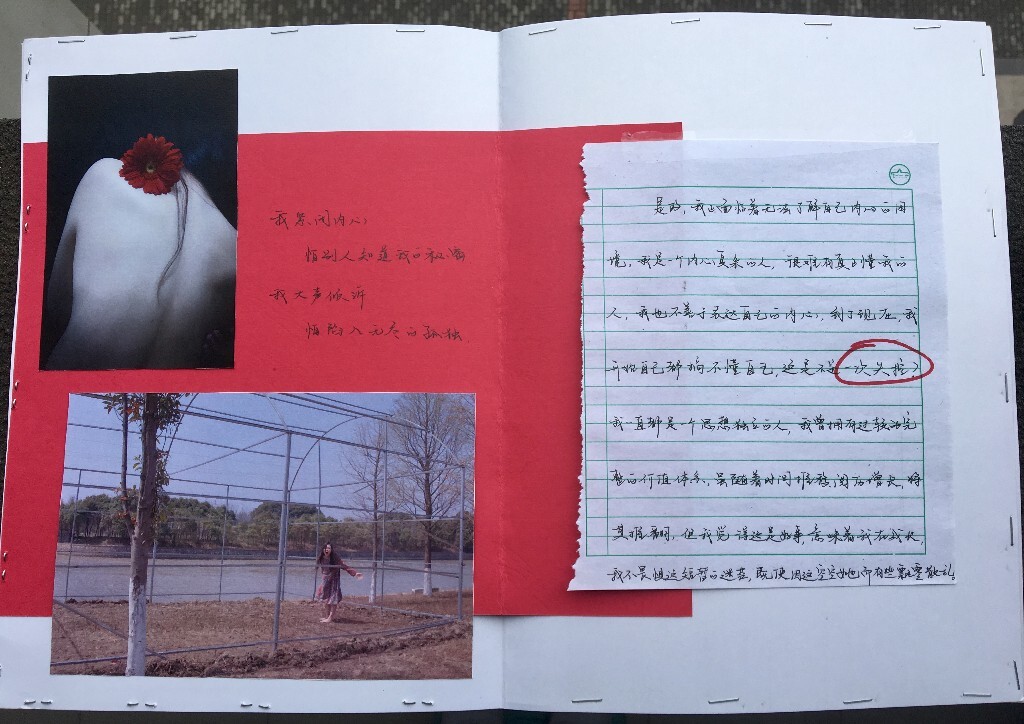 我紧闭内心
怕别人知道我的秘密
我大声倾诉
怕陷入无尽的孤独
是的，我正面临着无法了解自己内心的困
境，我是一个内心复杂的人，很难有真正懂我的
人，我也不善于表达自己的内心，到了现在，我
开始自己都搞不懂自己，这是不是一次失控？
我一直都是一个思想独立的人，我曾拥有过较为完
整的价值体系，虽随着时间推移阅历增长，将
其推翻，但我觉得这是好事，意味着我在成长，
我不畏惧这短暂的迷茫，即便因这空空如也而有些飘零散乱。